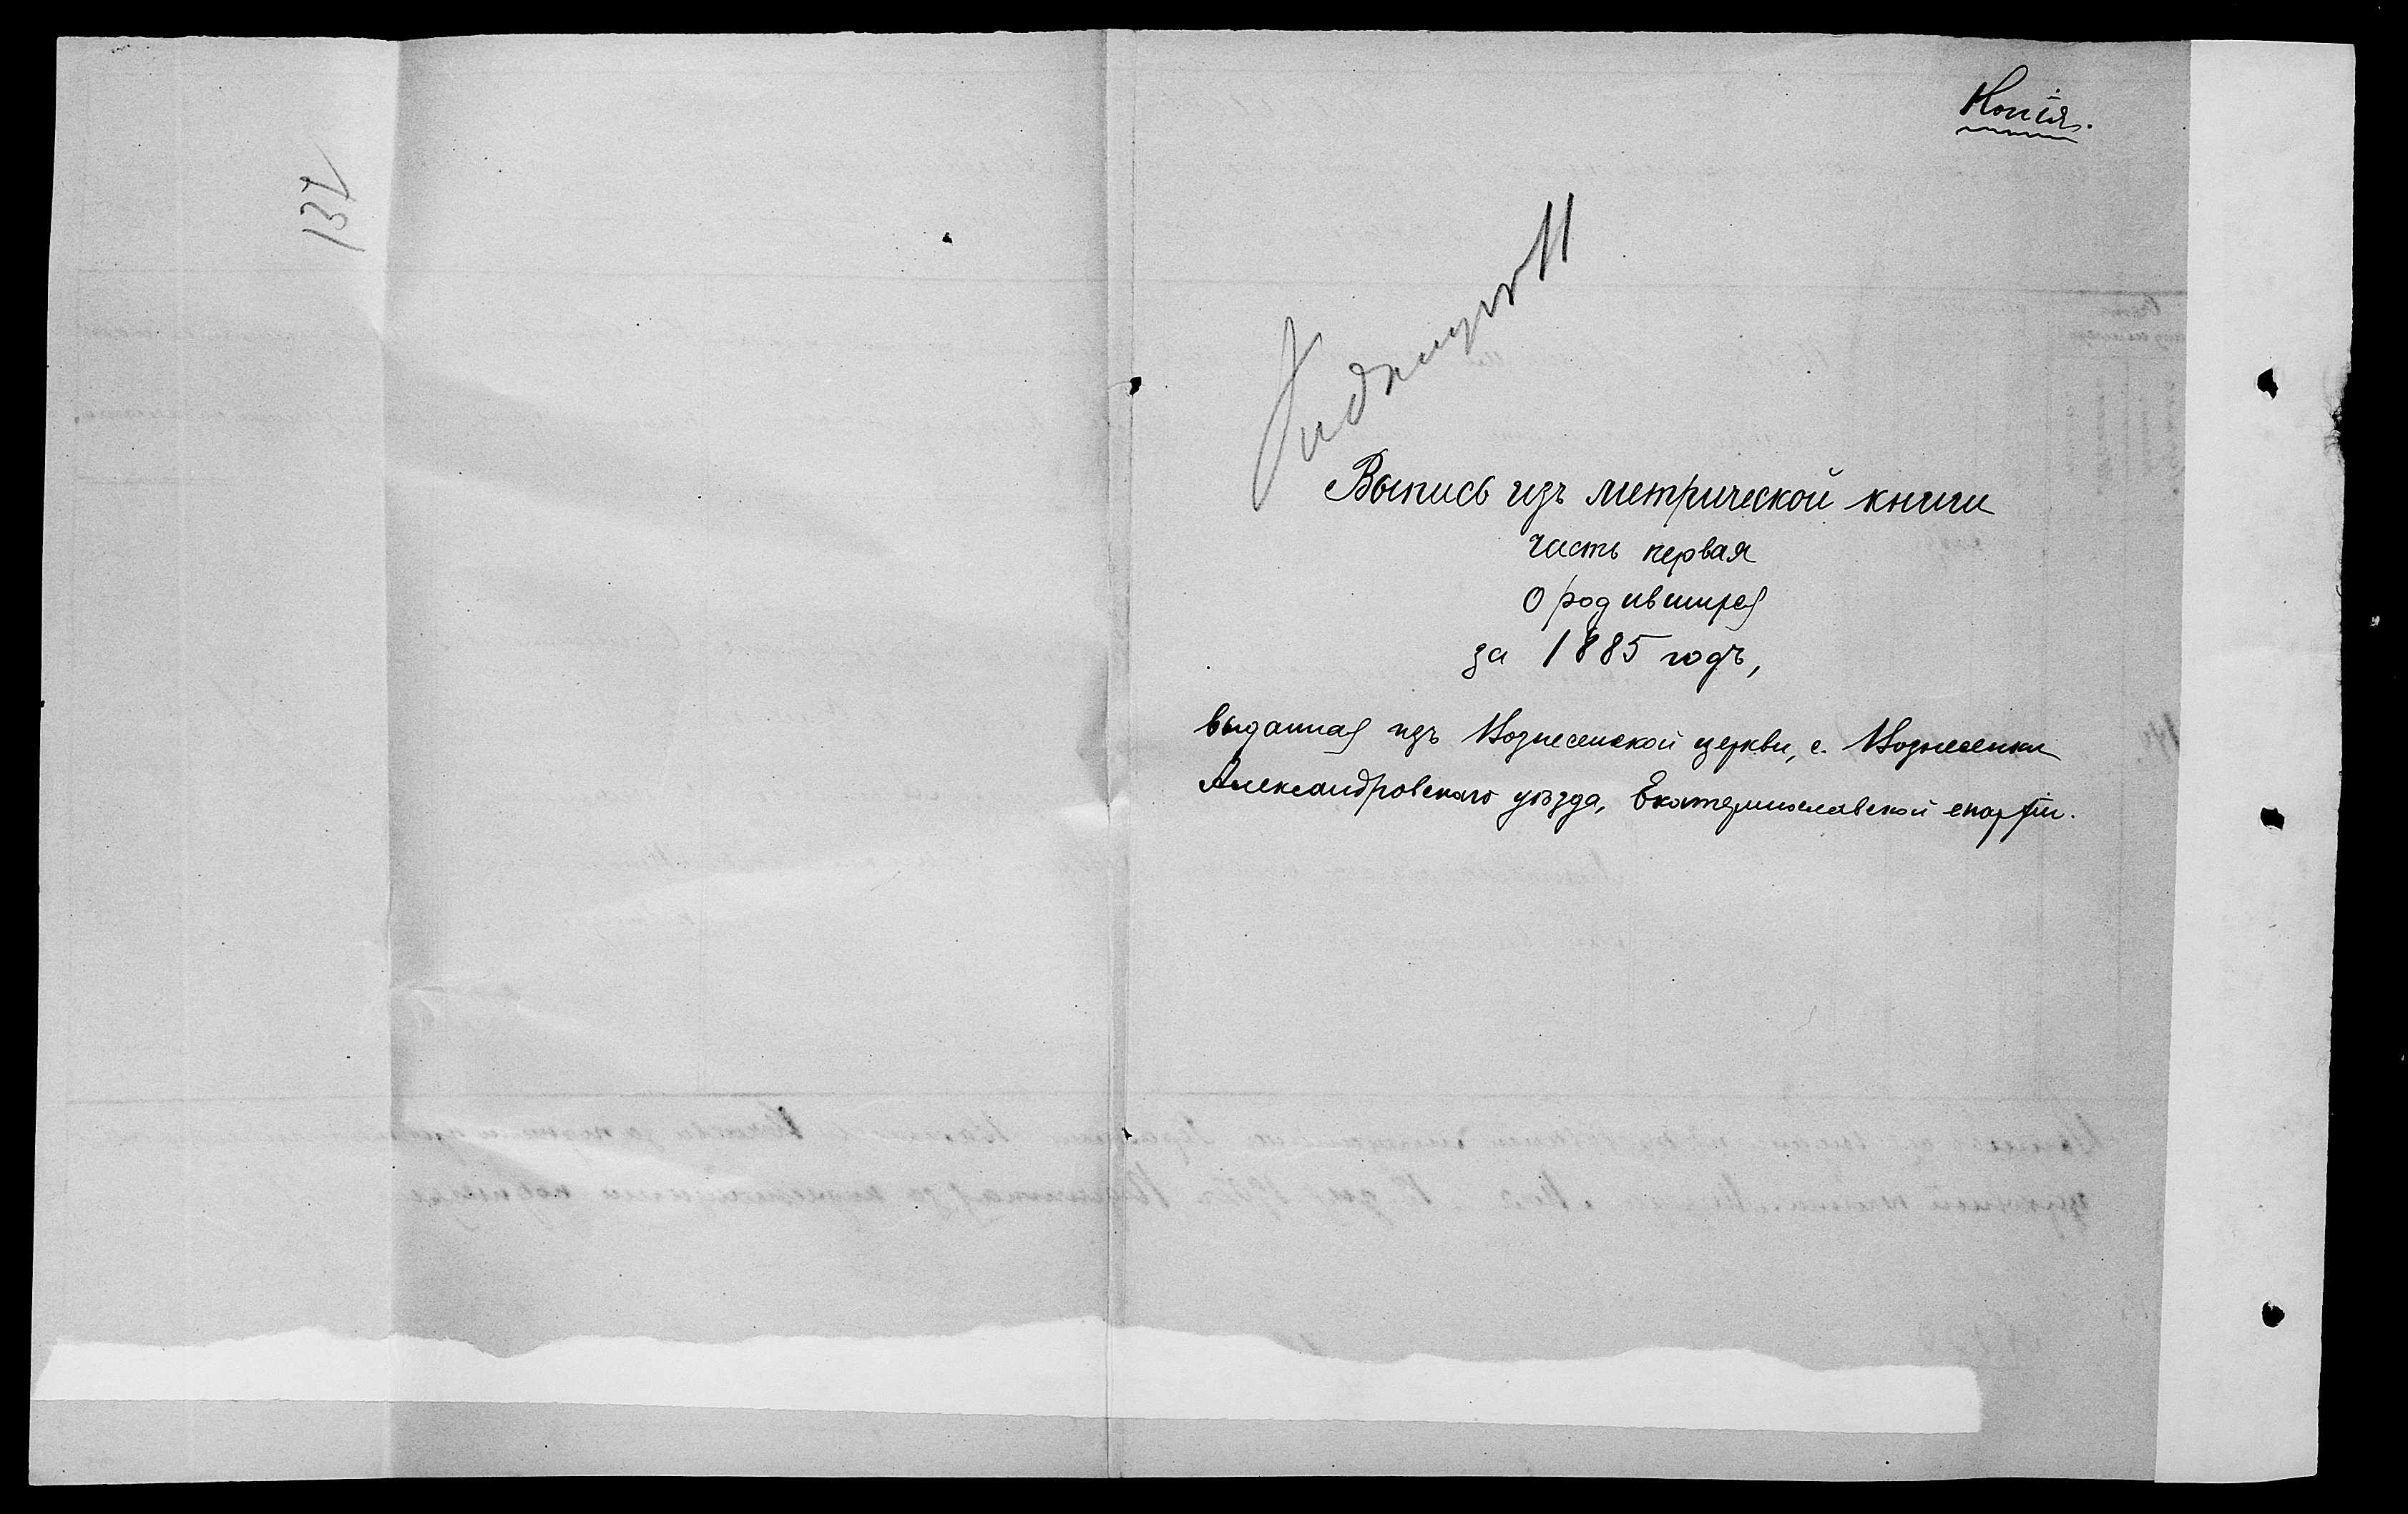 Копія.
Выпись изъ метрической книги
часть первая
О родившихся
за 1885 годъ,
выданная изъ Вознесенской церкви, с. Вознесенки
Александровскаго уѣзда, Екатеринославской епархіи.